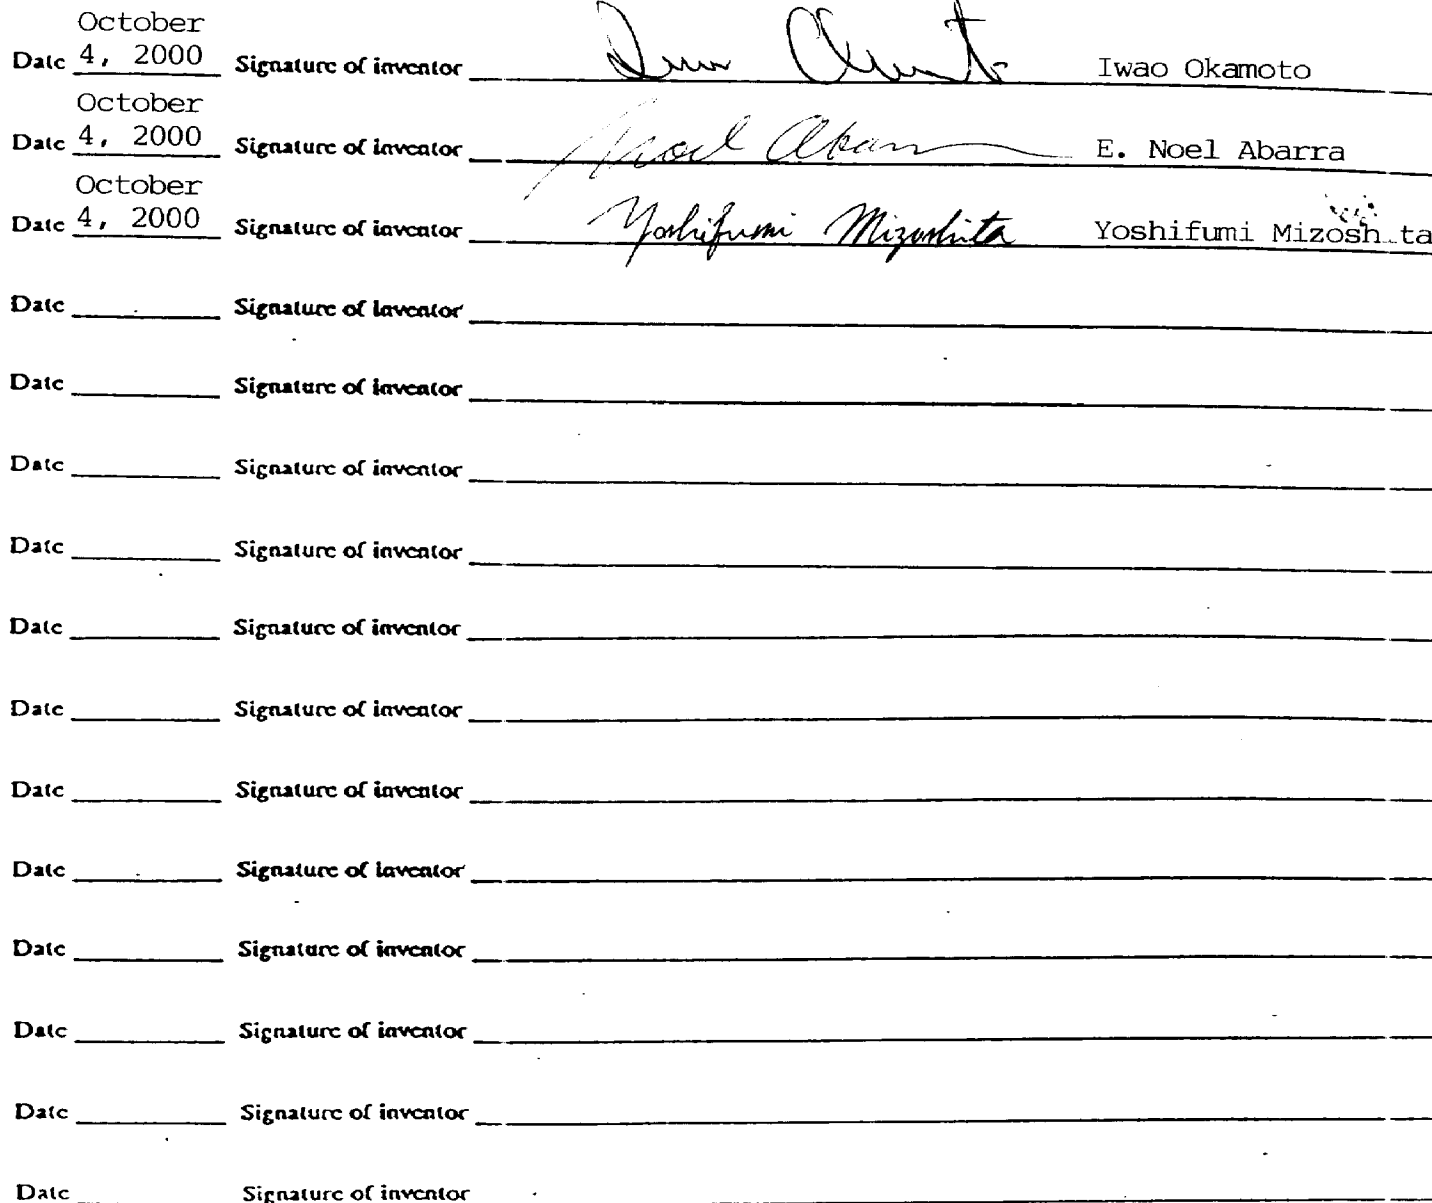 October
Date 4, 2000 Signature of inventor Iwao Okamoto
October
Date 4, 2000 Signature of inventor Noel Abarra E. Noel Abarra
October
Date 4, 2000 Signature of inventor Yoshifumi Mizoshita Yoshifumi Mizosh ta
Date Signature of inventor
Date Signature of inventor
Date Signature of inventor
Date Signature of inventor
Date Signature of inventor
Date Signature of inventor
Date Signature of inventor
Date Signature of inventor
Date Signature of inventor
Date Signature of inventor
Date Signature of inventor
Date Signature of inventor